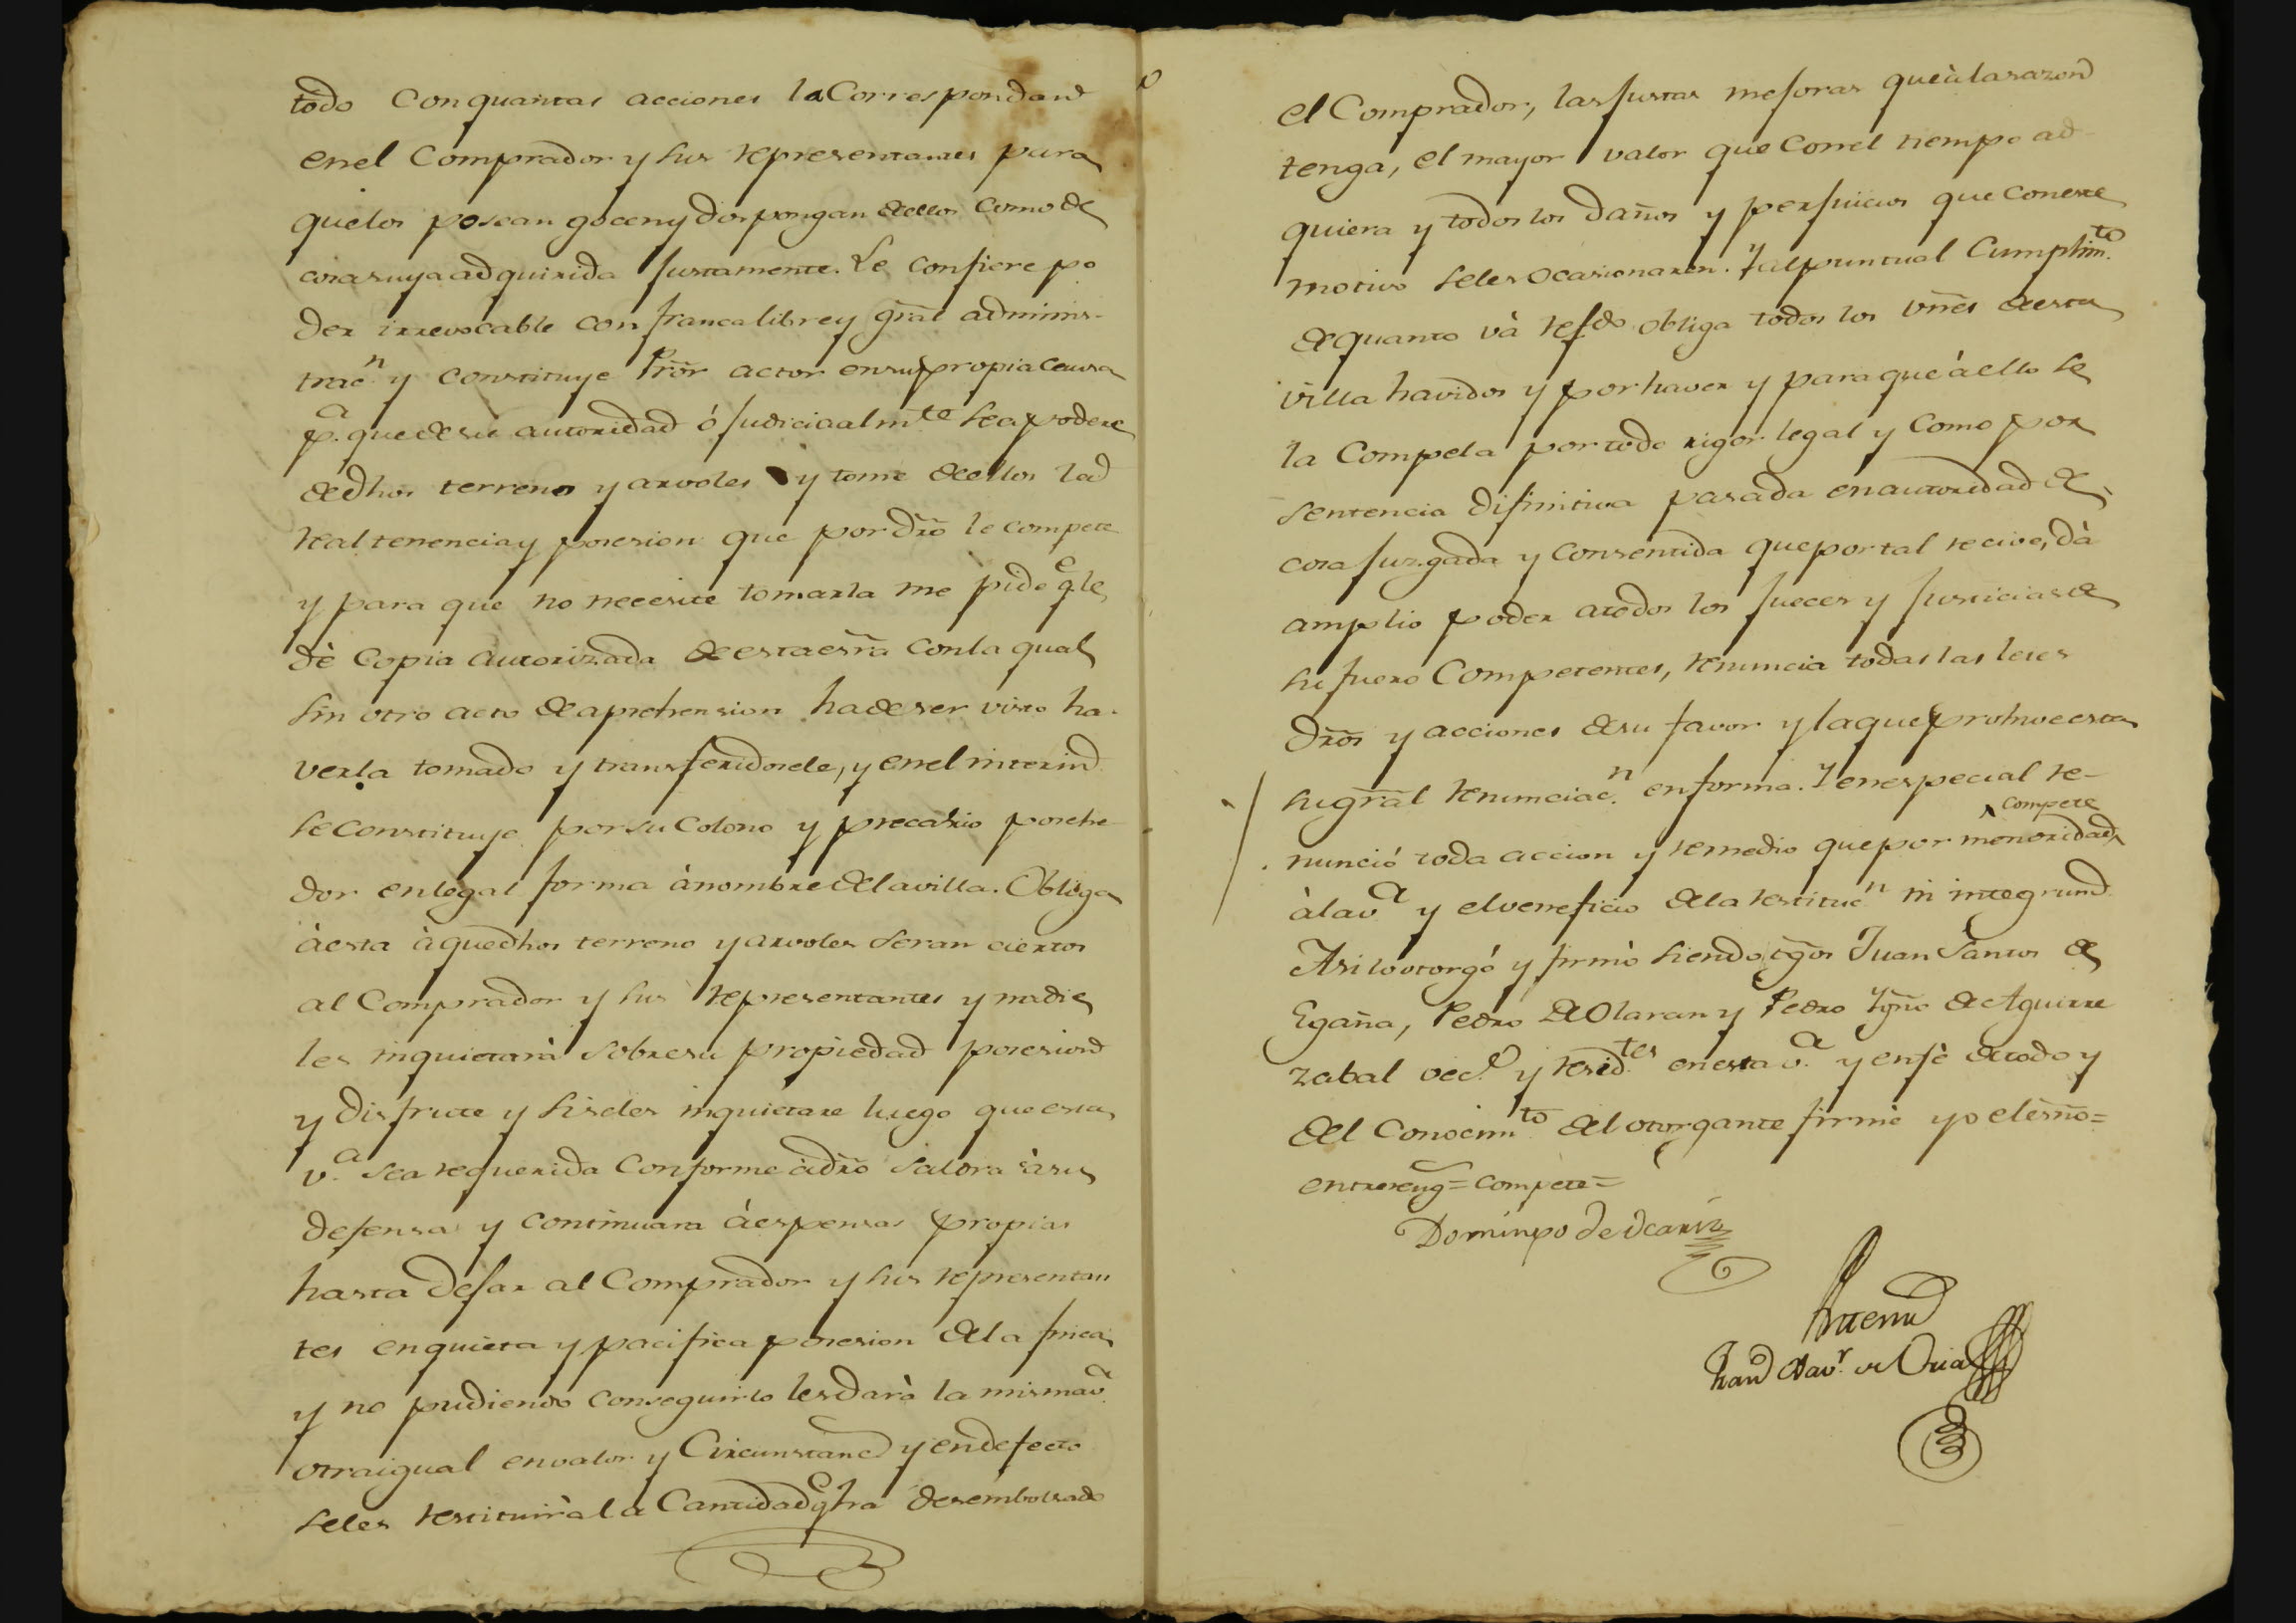 todo con quantas acciones la correspondan
en el Comprador y sus representantes para
que los posean gocen y dispongan de ellos como de
cosa suya adquirida justamente. Le confiere po
der irrevocable con franca libre y gral adminis-
tracn. y constituye Pror actor en su propia causa
pa. que de su autoridad ó judiciaalmte se apodere
de dhos terreno y arvoles y tome de ellos la
real tenencia y posesion que por dro le compete
y para que no necesite tomarla me pide qe le
dè copia autorizada de esta esra con la qual
sin otro acto de aprehension ha de ser visto ha-
verla tomado y transferidosele, y en el interin
se constituye por su Colono y precario posehe-
dor en legal forma à nombre de la villa. Obliga
à esta à que dhos terreno y arvoles seran ciertos
al Comprador y sus representantes y nadie
les inquietarà sobre su propiedad posesion
y disfrute y si se les inquietare luego que esta
va. sea requerida conforme à dro saldra à su
defensa y continuara à espensas propias
hasta dejar al Comprador y sus representan
tes en quieta y pacifica posesion de la finca
y no pudiendo conseguirlo les darà la misma va.
otra igual en valor y circunstanc y en defecto
se les restituirà la cantidad qe ha desembolsado
el Comprador, las justas mejoras que à la sazon
tenga, el mayor valor que con el tiempo ad
quiera y todos los daños y perjuicios que con este
motivo se les ocasionaren. Y al puntual cumplimto.
de quanto và refdo obliga todos los vnes de esta
villa havidos y por haver y para que à ello se
la compela por todo rigor legal y como por
sentencia difinitiva pasada en autoridad de
cosa juzgada y consentida que por tal recive, dà
amplio poder a todos los jueces y justicias de
su fuero competentes, renuncia todas las leies
dros y acciones de su favor y la que prohive esta
su gral renunciacn. en forma. Y en especial re-
compete
nunció toda accion y remedio que por menoridad
à la va y el veneficio de la restitucn in integrum
Asi lo otorgó y firmò siendo tgos Juan Santos de
Egaña, Pedro de Olaran y Pedro Ygno de Aguirre
zabal vecs. y residtes. en esta va. y en fè de todo y
del conocimto del otorgante firmè yo el esno=
entrereng= compete=
Domingo de
Antemi
Xavr. de Oria